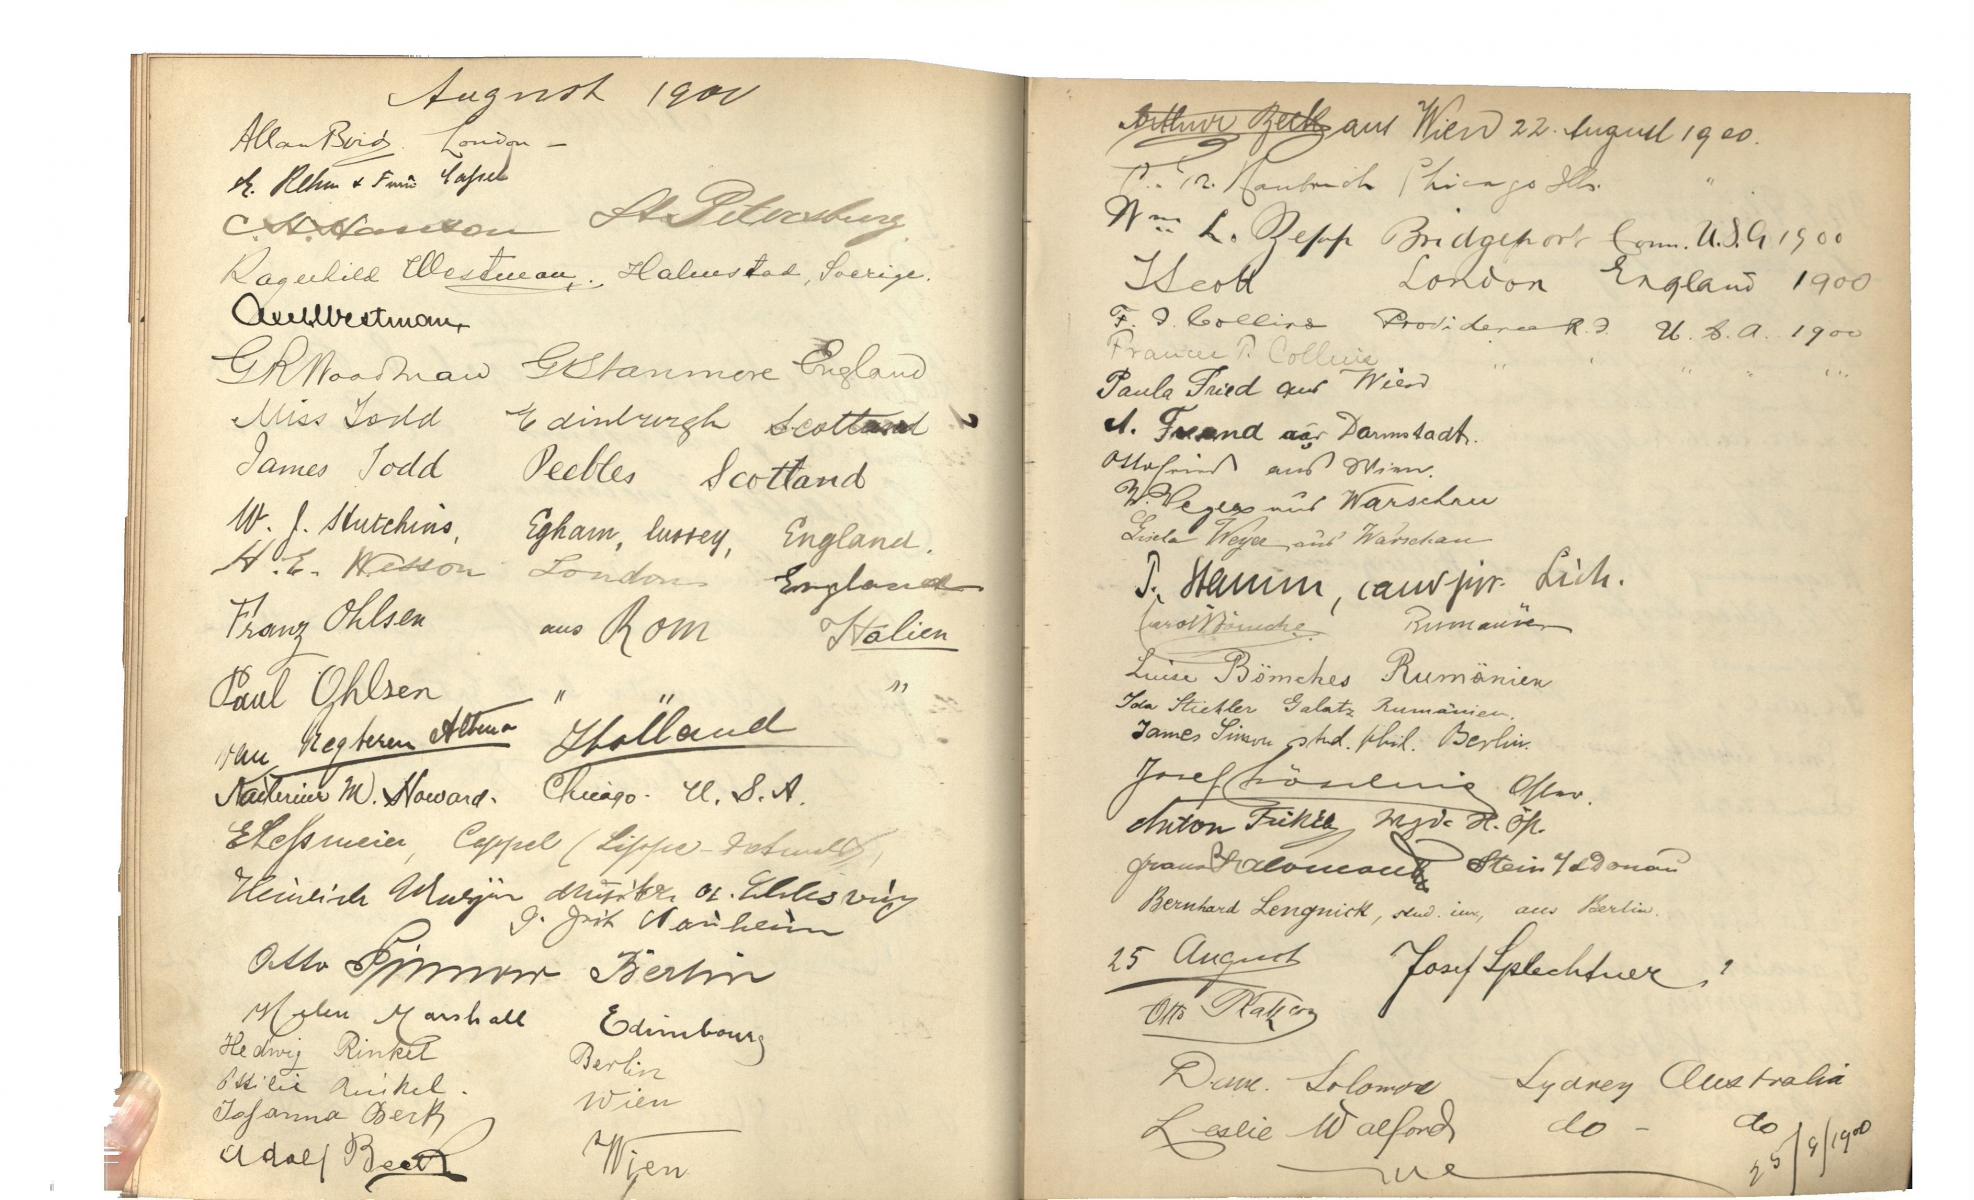 August 1900
Allan Bird London –
E. Rehm & Frau Cassel
C. H. Hanson St. Petersburg
Ragenhild Westman, Halmstad, Sverige.
Axel Westman
G R Woodman Gt Stanmore England
Miss Todd Edinburgh Scotland
James Todd Peebles Scotland
W. J. Hutchins, Egham, Surrey, England.
H. E. Wesson London England
Franz Ohlsen aus Rom Italien
Paul Ohlsen " " "
van Regteren Altena Holland
M. Howard. Chicago. U. S. A.
Cappel (Lippe-Detmold)
Heinrich
Nauheim
Otto Pinnow Berlin
Helen Marshall Edimbourg
Hedwig Rinkel Berlin
Ottilie Rinkel. Wien
Johanna Beck
Adolf Beck Wien
Arthur Beck aus Wien 22. August 1900.
Chicago Ills. "
Wm. L. Zepp Bridgeport Conn. U.S.A 1900
J Scott London England 1900
F. J. Collins Providence R.I. U.S.A. 1900
Frances P. Collins " " " " "
Paula Fried aus Wien
A. Freund aus Darmstadt.
Otto Fried aus Wien.
W. Weyer aus Warschau
Gisela Weyer aus Warschau
P. Stamm, Lich.
Rumänien
Luise Bömches Rumänien
Ida Stiehler Galatz Rumänien.
James Simon stud. phil. Berlin.
Josef
Anton
Franz Stein a/d Donau
Bernhard Lengnick, stud. iur., aus Berlin.
25 August Josef Splechtner
Otto
Dave. Solomon Sydney Australia
Leslie Walford do – do
25/8/1900